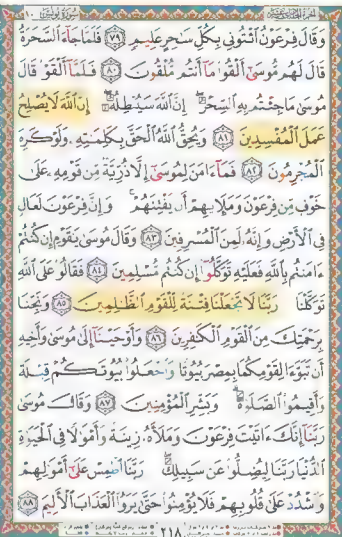 سورة يونس
وَقَالَ فِرْعَوْنُ ائْتُونِي بِكُلِّ سَاحِرٍ عَلِيمٍ ﴿٧٩﴾ فَلَمَّا جَاءَ السَّحَرَةُ
قَالَ لَهُم مُّوسَىٰ أَلْقُوا مَا أَنتُم مُّلْقُونَ ﴿٨٠﴾ فَلَمَّا أَلْقَوْا قَالَ
مُوسَىٰ مَا جِئْتُم بِهِ السِّحْرُ إِنَّ اللَّهَ سَيُبْطِلُهُ إِنَّ اللَّهَ لَا يُصْلِحُ
عَمَلَ الْمُفْسِدِينَ ﴿٨١﴾ وَيُحِقُّ اللَّهُ الْحَقَّ بِكَلِمَاتِهِ وَلَوْ كَرِهَ
الْمُجْرِمُونَ ﴿٨٢﴾ فَمَا آمَنَ لِمُوسَىٰ إِلَّا ذُرِّيَّةٌ مِّن قَوْمِهِ عَلَىٰ
خَوْفٍ مِّن فِرْعَوْنَ وَمَلَإِيهِمْ أَن يَفْتِنَهُمْ وَإِنَّ فِرْعَوْنَ لَعَالٍ
فِي الْأَرْضِ وَإِنَّهُ لَمِنَ الْمُسْرِفِينَ ﴿٨٣﴾ وَقَالَ مُوسَىٰ يَا قَوْمِ إِن كُنتُمْ
آمَنتُم بِاللَّهِ فَعَلَيْهِ تَوَكَّلُوا إِن كُنتُم مُّسْلِمِينَ ﴿٨٤﴾ فَقَالُوا عَلَى اللَّهِ
تَوَكَّلْنَا رَبَّنَا لَا تَجْعَلْنَا فِتْنَةً لِّلْقَوْمِ الظَّالِمِينَ ﴿٨٥﴾ وَنَجِّنَا
بِرَحْمَتِكَ مِنَ الْقَوْمِ الْكَافِرِينَ ﴿٨٦﴾ وَأَوْحَيْنَا إِلَىٰ مُوسَىٰ وَأَخِيهِ
أَن تَبَوَّآ لِقَوْمِكُمَا بِمِصْرَ بُيُوتًا وَاجْعَلُوا بُيُوتَكُمْ قِبْلَةً
وَأَقِيمُوا الصَّلَاةَ وَبَشِّرِ الْمُؤْمِنِينَ ﴿٨٧﴾ وَقَالَ مُوسَىٰ
رَبَّنَا إِنَّكَ آتَيْتَ فِرْعَوْنَ وَمَلَأَهُ زِينَةً وَأَمْوَالًا فِي الْحَيَاةِ
الدُّنْيَا رَبَّنَا لِيُضِلُّوا عَن سَبِيلِكَ رَبَّنَا اطْمِسْ عَلَىٰ أَمْوَالِهِمْ
وَاشْدُدْ عَلَىٰ قُلُوبِهِمْ فَلَا يُؤْمِنُوا حَتَّىٰ يَرَوُا الْعَذَابَ الْأَلِيمَ ﴿٨٨﴾
٢١٨